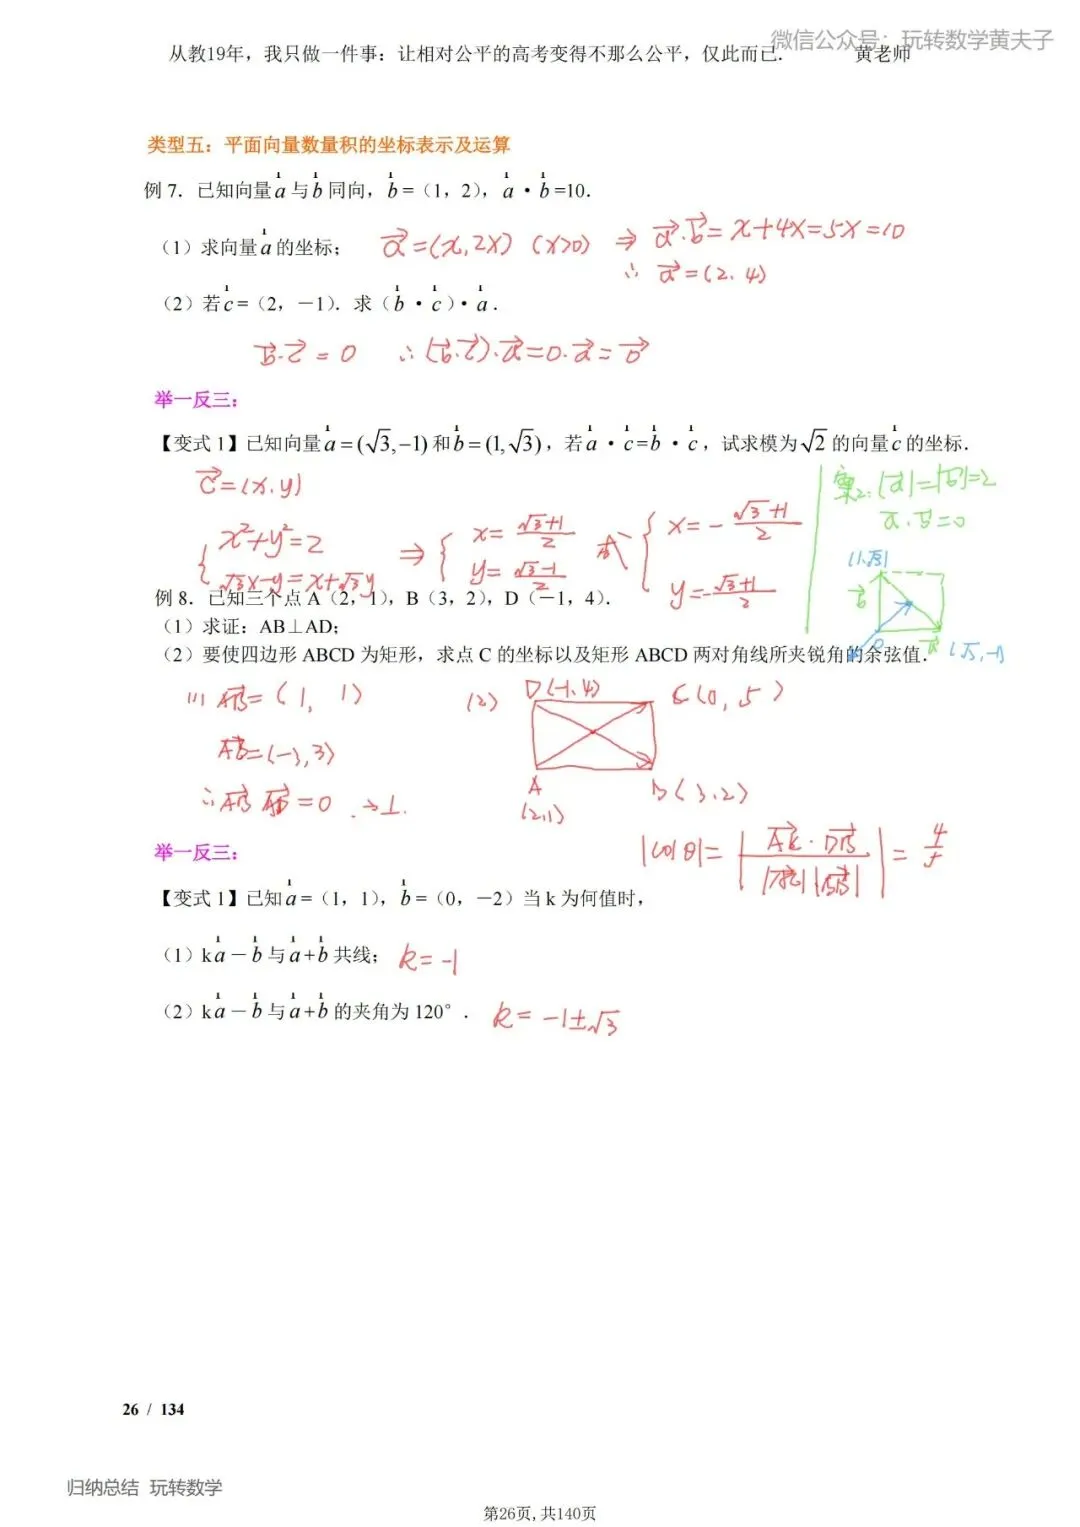 微信公众号：玩转数学黄夫子
从教19年，我只做一件事：让相对公平的高考变得不那么公平，仅此而已． 黄老师
类型五：平面向量数量积的坐标表示及运算
例 7．已知向量a与b同向，b=（1，2），a·b=10．
（1）求向量a的坐标； a⃗=(x,2x) (x>0) ⇒ a⃗·b⃗=x+4x=5x=10
∴ a⃗=(2,4)
（2）若c=（2，－1）．求（b·c）·a．
b⃗·c⃗=0 ∴(b⃗·c⃗)·a⃗=0·a⃗=0⃗
举一反三：
【变式 1】已知向量a=(√3,−1)和b=(1,√3)，若a·c=b·c，试求模为√2的向量c的坐标．
c⃗=(x,y)
{ x²+y²=2
√3x−y=x+√3y
⇒ { x=(√3+1)/2
y=(√3−1)/2
或 { x=−(√3+1)/2
y=−(√3+1)/2
|a⃗|=|b⃗|=2
a⃗·b⃗=0
(1,√3)
b⃗
0 a⃗ (√3,−1)
例 8．已知三个点 A（2，1），B（3，2），D（－1，4）．
（1）求证：AB⊥AD；
（2）要使四边形 ABCD 为矩形，求点 C 的坐标以及矩形 ABCD 两对角线所夹锐角的余弦值．
(1) AB⃗=(1, 1) (2) D(-1,4) C(0, 5)
AD⃗=(-3,3)
∴AB⃗ AD⃗=0 ⇒⊥.
A
(2,1)
B(3,2)
|cosθ|=|AC⃗·DB⃗/|AC⃗||DB⃗||=4/5
举一反三：
【变式 1】已知a=（1，1），b=（0，－2）当 k 为何值时，
（1）ka－b与a+b共线； k=-1
（2）ka－b与a+b的夹角为 120°． k=-1±√3
26 / 134
归纳总结 玩转数学
第26页,共140页